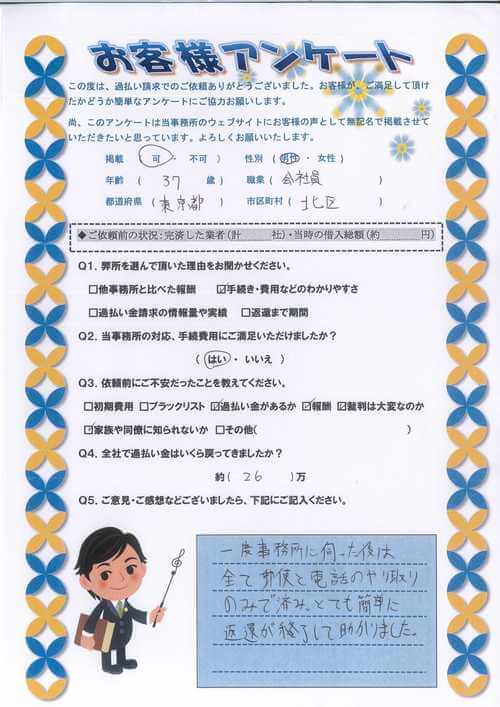 お客様アンケート
この度は、過払い請求でのご依頼ありがとうございました。お客様が、ご満足して頂け
たかどうか簡単なアンケートにご協力お願いします。
尚、このアンケートは当事務所のウェブサイトにお客様の声として無記名で掲載させて
いただきたいと思っています。よろしくお願いいたします。
掲載 ( 可 ・ 不可 ) 性別 ( 男性 ・ 女性 )
年齢 ( 37 歳 ) 職業 ( 会社員 )
都道府県 ( 東京都 ) 市区町村 ( 北区 )
◆ご依頼前の状況:完済した業者(計 社)・当時の借入総額(約 円)
Q1. 弊所を選んで頂いた理由をお聞かせください。
□他事務所と比べた報酬 ☑手続き・費用などのわかりやすさ
□過払い金請求の情報量や実績 □返還まで期間
Q2. 当事務所の対応、手続費用にご満足いただけましたか?
( はい ・ いいえ )
Q3. 依頼前にご不安だったことを教えてください。
□初期費用 □ブラックリスト ☑過払い金があるか ☑報酬 ☑裁判は大変なのか
☑家族や同僚に知られないか □その他( )
Q4. 全社で過払い金はいくら戻ってきましたか?
約( 26 )万
Q5. ご意見・ご感想などございましたら、下記にご記入ください。
一度事務所に伺った後は
全て郵便と電話のやり取り
のみで済み、とても簡単に
返還が終了して助かりました。